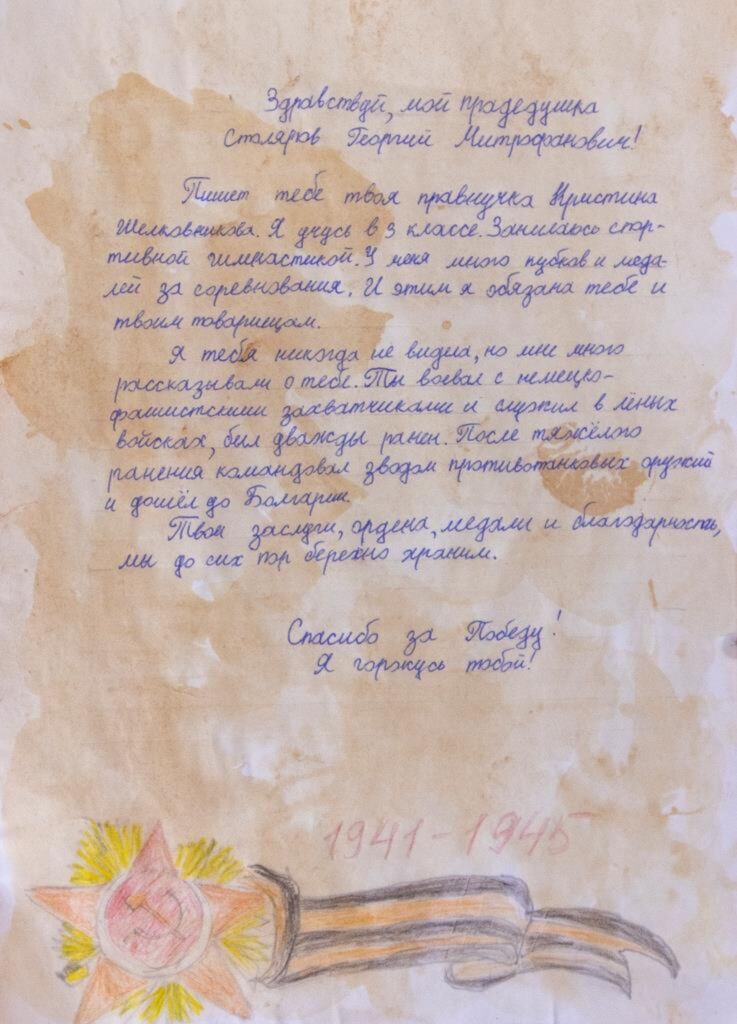 Здравствуй, мой прадедушка
Столяров Георгий Митрофанович!
Пишет тебе твоя правнучка Кристина
Шелковникова. Я учусь в 3 классе. Занимаюсь спор-
тивной гимнастикой. У меня много кубков и меда-
лей за соревнования. И этим я обязана тебе и
твоим товарищам.
Я тебя никогда не видела, но мне много
рассказывали о тебе. Ты воевал с немецко-
фашистскими захватчиками и служил в
войсках, был дважды ранен. После тяжёлого
ранения командовал зводом противотанковых оружий
и дошёл до Болгарии.
Твои заслуги, ордена, медали и благодарности,
мы до сих пор бережно храним.
Спасибо за Победу!
Я горжусь тобой!
1941-1945